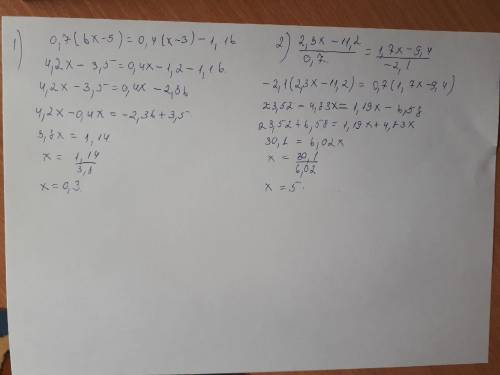 1) 0,7(6x-5)=0,4(x-3)-1,16
4,2x-3,5=0,4x-1,2-1,16
4,2x-3,5=0,4x-2,36
4,2x-0,4x=-2,36+3,5
3,8x=1,14
x = 1,14/3,8
x=0,3.
2) 2,3x-11,2/0,7 = 1,7x-9,4/-2,1
-2,1(2,3x-11,2)=0,7(1,7x-9,4)
23,52-4,83x=1,19x-6,58
23,52+6,58=1,19x+4,83x
30,1=6,02x
x = 30,1/6,02
x=5.